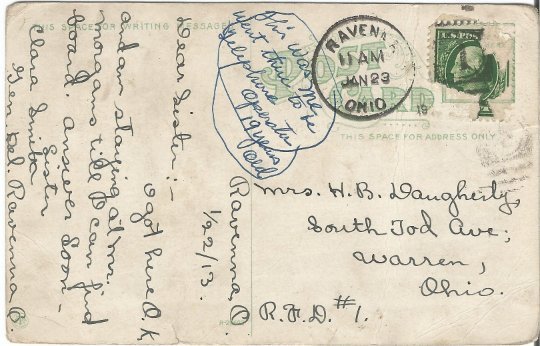 THIS SPACE FOR WRITING MESSAGES
POST
CARD
THIS SPACE FOR ADDRESS ONLY
RAVENNA
11 AM
JAN 23
OHIO
U.S. POS
This was me
went there to be
telephone
operator
19 years
old
Ravenna, O.
1/22/13.
Dear Sister:-
I got here O.K.
I am staying at Mr.
Morgans till I can find
board. Answer soon.
Sister
Clara
Gen Del. Ravenna O.
Mrs. H. B. Daugherty,
South Tod Ave;
Warren,
Ohio.
R.F.D. #1.